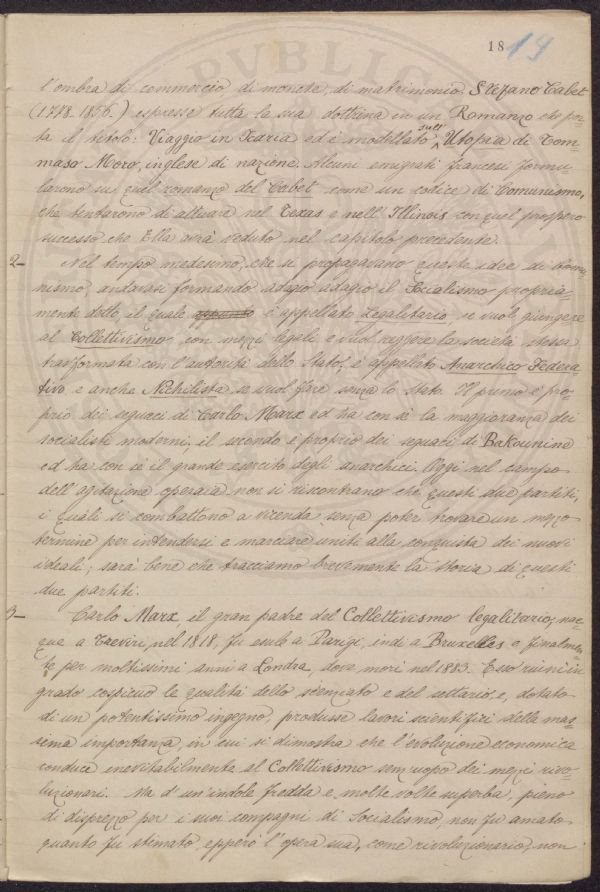 18 14
l'ombra di commercio di monete, di matrimonio. Stefano Cabet
(1778. 1856.) espresse tutta la sua dottrina in un Romanzo che por-
ta il titolo: Viaggio in Icaria ed è modellato sull' Utopia di Tom-
maso Moro, inglese di nazione. Alcuni emigrati francesi formu-
larono su quel romanzo del Cabet come un codice di Comunismo,
che tentarono di attuare nel Texas e nell'Illinois con quel prospero
successo che Ella avrà veduto nel capitolo precedente.
2– Nel tempo medesimo, che si propagavano queste idee di Comu-
nismo, andavasi formando adagio adagio il Socialismo propria-
mente detto, il quale è appellato Legalitario se vuol giungere
al Collettivismo con mezzi legali e vuol reggere la società stessa
trasformata con l'autorità dello Stato; è appellato Anarchico Federa-
tivo e anche Nichilista se vuol fare senza lo Stato. Il primo è pro-
prio dei seguaci di Carlo Marx ed ha con sè la maggioranza dei
socialisti moderni, il secondo è proprio dei seguaci di Bakounine
ed ha con sè il grande esercito degli anarchici. Oggi nel campo
dell'agitazione operaia non si riscontrano che questi due partiti,
i quali si combattono a vicenda senza poter trovare un mezzo
termine per intendersi e marciare uniti alla conquista dei nuovi
ideali; sarà bene che tracciamo brevemente la storia di questi
due partiti.
3– Carlo Marx, il gran padre del Collettivismo legalitario, nac-
que a Treviri, nel 1818, fu esule a Parigi, indi a Bruxelles e finalmen-
te per moltissimi anni a Londra, dove morì nel 1883. Esso riunì in
grado cospicuo le qualità dello scienziato e del settario; e, dotato
di un potentissimo ingegno, produsse lavori scientifici della mas-
sima importanza, in cui si dimostra che l'evoluzione economica
conduce inevitabilmente al Collettivismo senz'uopo dei mezzi rivo-
luzionari. Ma d'un'indole fredda e, molte volte superba, pieno
di disprezzo per i suoi compagni di Socialismo, non fu amato
quanto fu stimato, epperò l'opera sua, come rivoluzionario, non